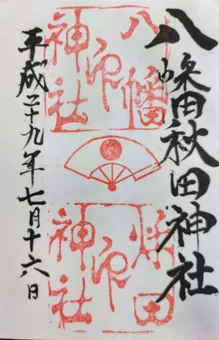 八幡秋田神社
八幡
印
神社
秋田
印
神社
平成二十九年七月十六日